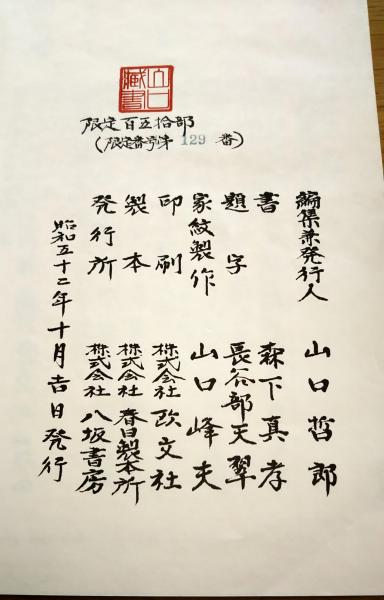 山口
藏書
限定百五拾部
(限定番号第 129 番)
編集兼発行人 山口哲郎
書 森下真孝
題字 長谷部天翠
家紋製作 山口峰夫
印刷 株式会社 欧文社
製本 株式会社 春日製本所
発行所 株式会社 八坂書房
昭和五十二年十月吉日発行